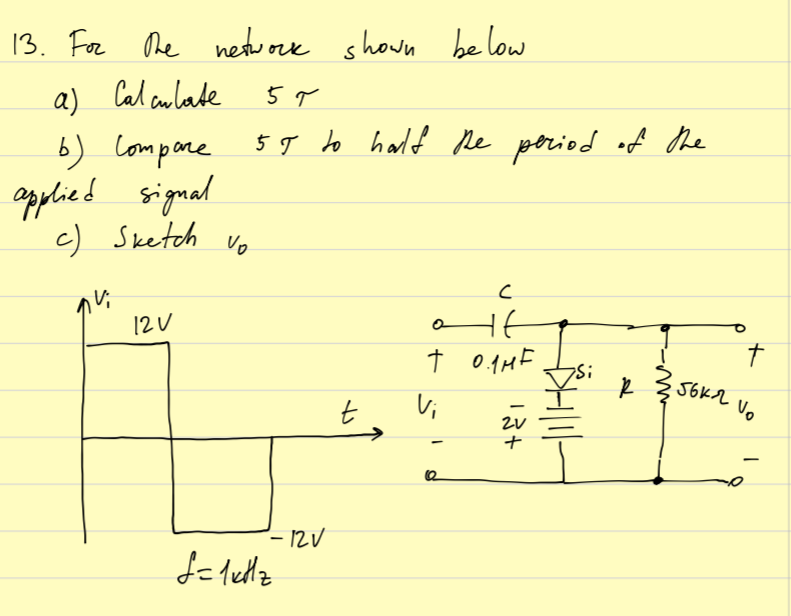 13. For the network shown below
a) Calculate 5τ
b) Compare 5τ to half the period of the
applied signal
c) Sketch v₀
Vi
12V
t
-12V
f=1kHz
C
0.1μF
+
Vi
-
Si
-
2V
+
R
56kΩ
+
V₀
-